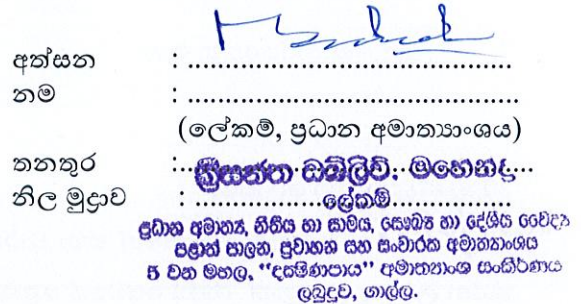 අත්සන : ........................................
නම : ........................................
(ලේකම්, ප්‍රධාන අමාත්‍යාංශය)
තනතුර :... ඩබ්ලිව්. මහෙන්ද්‍ර...
නිල මුද්‍රාව : ............ලේකම්............
ප්‍රධාන අමාත්‍ය, නීතිය හා සාමය, සෞඛ්‍ය හා දේශීය වෛද්‍ය
පළාත් පාලන, ප්‍රවාහන සහ සංචාරක අමාත්‍යාංශය
5 වන මහල, "දක්ෂිණපාය" අමාත්‍යාංශ සංකීර්ණය
ලබුදූව, ගාල්ල.